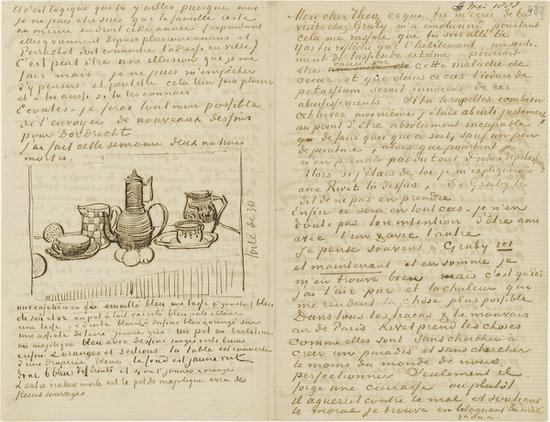 et c'est logique que tu y ailles puisque moi
je ne puis être sûr que la famille reste
au même endroit cette année cependant
elles vivent depuis plusieurs années et
Perrichot doit connaître l'adresse en ville
C'est peut être une illusion que je me
fais mais je ne puis m'empêcher
d'y penser et peut être cela leur fera plaisir
et à toi aussi si tu les connais.
Ecoutes – je ferai tout mon possible
de t'envoyer de nouveaux dessins
pour Dordrecht
J'ai fait cette semaine deux natures
mortes.
toile de 30
une cafetière en fer émaillé bleu une tasse (à gauche) bleu
de roi et or un pot à lait carrelé bleu pâle et blanc
une tasse – à droite blanche à dessins bleus & oranges sur
une assiette de terre jaune gris un pot en barbotine
ou majolique bleu avec dessins rouges verts bruns
enfin 2 oranges et 3 citrons la table est couverte
d'une draperie bleue le fond est jaune vert
donc 6 bleus différents et 4 ou 5 jaunes & oranges
L'autre nature morte est le pot de majolique avec des
fleurs sauvages
Mai 1888
489
Mon cher Theo, ce que tu m'écris de ta
visite chez Gruby m'a émotionné pourtant
cela me rassure que tu sois allé là
As-tu réfléchi que l'hébètement – un senti-
ment de lassitude extrême – pourrait
être causé par cette maladie de
coeur et que dans ce cas l'iodure de
potassium serait innocent de ces
abasourdissements. Si tu te rappelles combien
cet hiver moi même j'étais abruti justement
au point d'être absolument incapable
de faire quoi que ce soit, sauf un peu
de peinture, alors que pourtant je
n'en prenais pas du tout d'iodure de potassium
Alors si j'étais de toi je m'expliquerais
avec Rivet là dessus, si Gruby te
dit de ne pas en prendre.
Enfin ce sera en tout cas – je n'en
doute pas ton intention d'être ami
avec l'un & avec l'autre
Je pense souvent à Gruby ici
et maintenant et en somme je
m'en trouve bien mais c'est qu'ici
j'ai l'air pur et la chaleur qui
me rendent la chose plus possible
Dans tous les tracas & le mauvais
air de Paris Rivet prend les choses
comme elles sont sans chercher à
créer un paradis et sans chercher
le moins du monde de nous
perfectionner Seulement il
forge une cuirasse ou plutôt
il aguerrit contre le mal et soutient
le moral je trouve en blaguant le mal
qu'on a